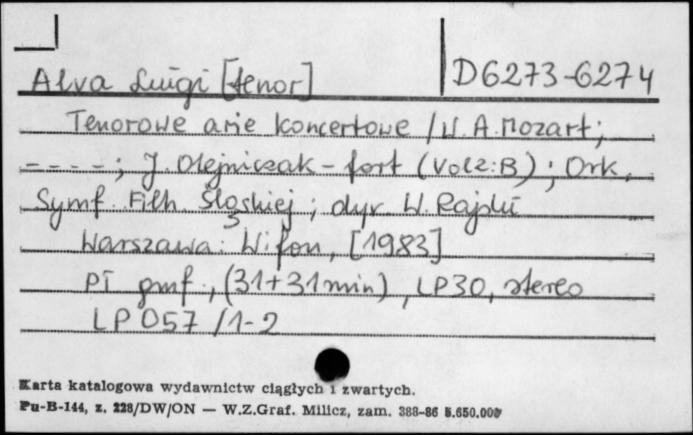 Alva Luigi [tenor]
D6273-6274
Tenorowe arie koncertowe / W. A. Mozart;
- - - - ; J. Olejniczak - fort (vol2:B); Ork.
Symf. Filh Śląskiej; dyr. W. Rajski
Warszawa: Wifon, [1983]
pł gmf., (31+31min), LP30, stereo
LP 057 / 1-2
Karta katalogowa wydawnictw ciągłych i zwartych.
Pu-B-144, z. 228/DW/ON — W.Z.Graf. Milicz, zam. 388-86 5.650.000